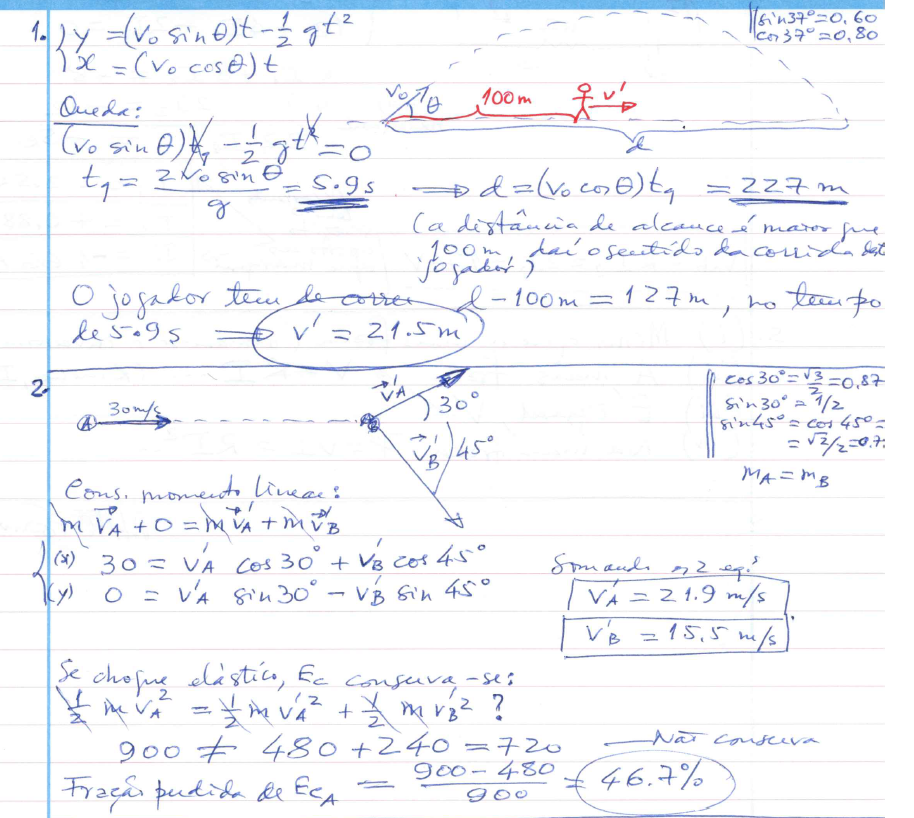 1. y = (v₀ sin θ)t - 1/2 gt²
x = (v₀ cos θ) t
sin 37° = 0,60
cos 37° = 0,80
v₀ θ 100m v'
d
Queda:
(v₀ sin θ)t_q - 1/2 gt² = 0
t_q = 2v₀ sin θ / g = 5.9s ⟹ d = (v₀ cos θ) t_q = 227 m
(a distância de alcance é maior que
100m daí o sentido da corrida do
jogador)
O jogador tem de correr d - 100m = 127m, no tempo
de 5.9s ⟹ v' = 21.5m
2.
A 30m/s B v'_A 30°
v'_B 45°
cos 30° = √3/2 = 0,87
sin 30° = 1/2
sin 45° = cos 45° =
= √2/2 = 0.7
m_A = m_B
Cons. momento linear:
m v_A + 0 = m v'_A + m v'_B
(x) 30 = v'_A cos 30° + v'_B cos 45°
(y) 0 = v'_A sin 30° - v'_B sin 45°
Somando as 2 eq.s
v'_A = 21.9 m/s
v'_B = 15,5 m/s
Se choque elástico, Ec conserva-se:
1/2 m v_A² = 1/2 m v'_A² + 1/2 m v'_B² ?
900 ≠ 480 + 240 = 720 — Não conserva
Fração perdida de Ec_A = (900 - 480)/900 = 46.7%